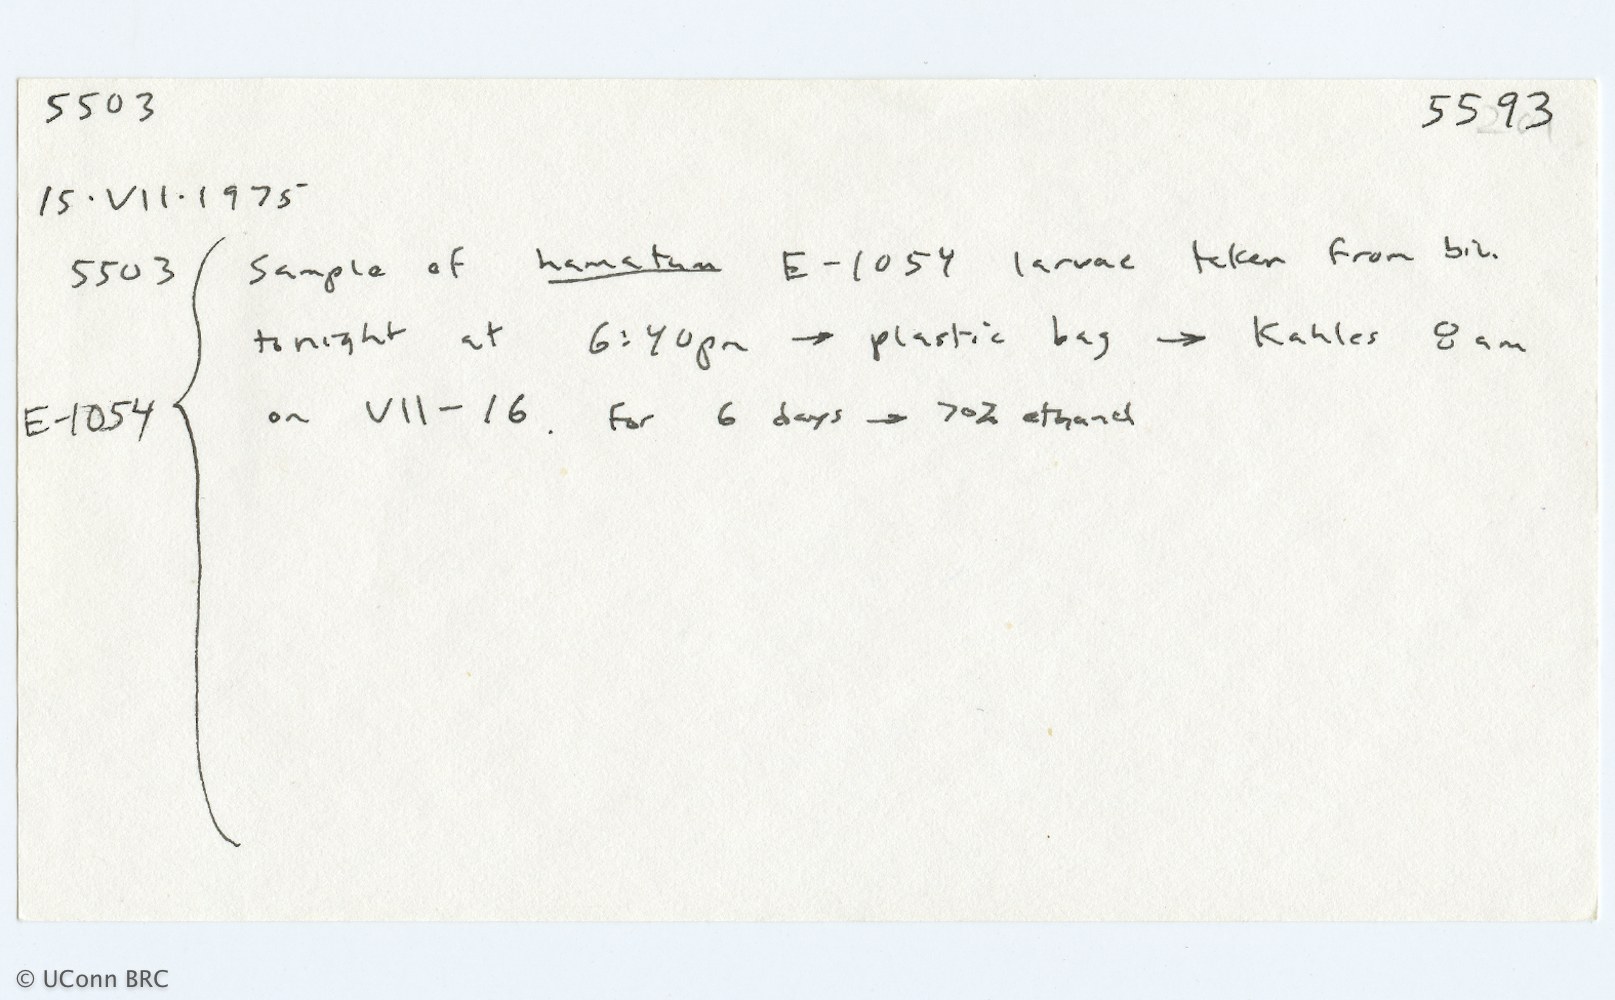 5503 5593
15.VII.1975
5503 Sample of hamatum E-1054 larvae taken from biv.
tonight at 6:40pm → plastic bag → Kahles 8 am
E-1054 on VII-16. For 6 days → 70% ethanol
© UConn BRC